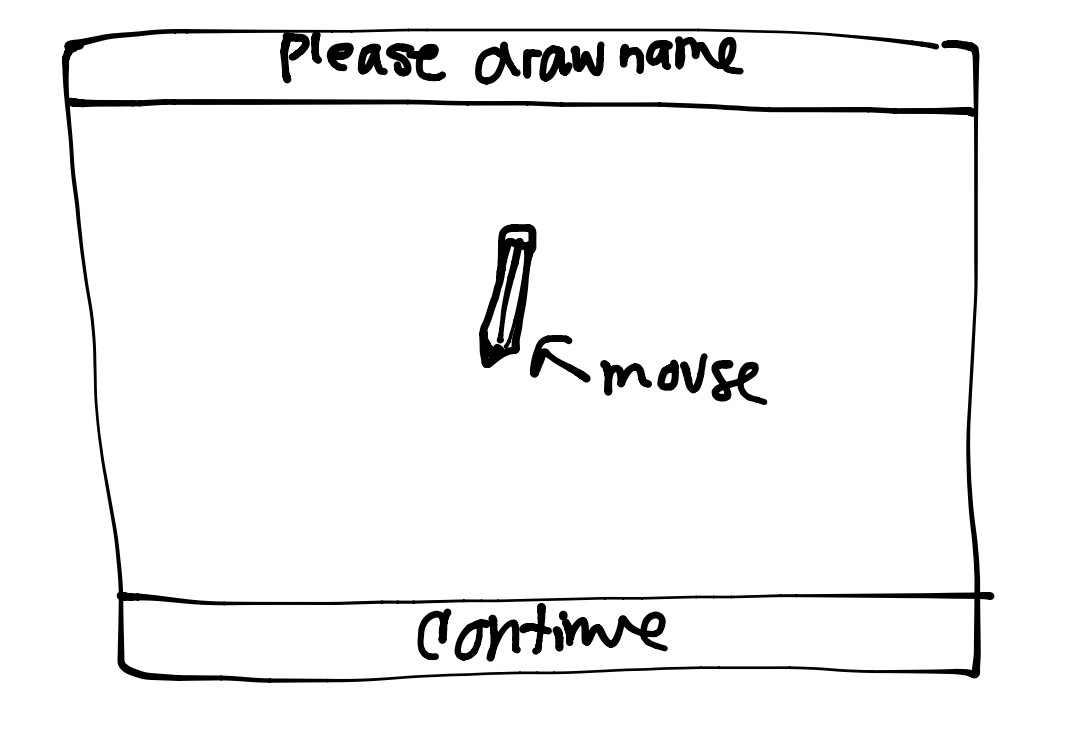 Please draw name
mouse
Continue